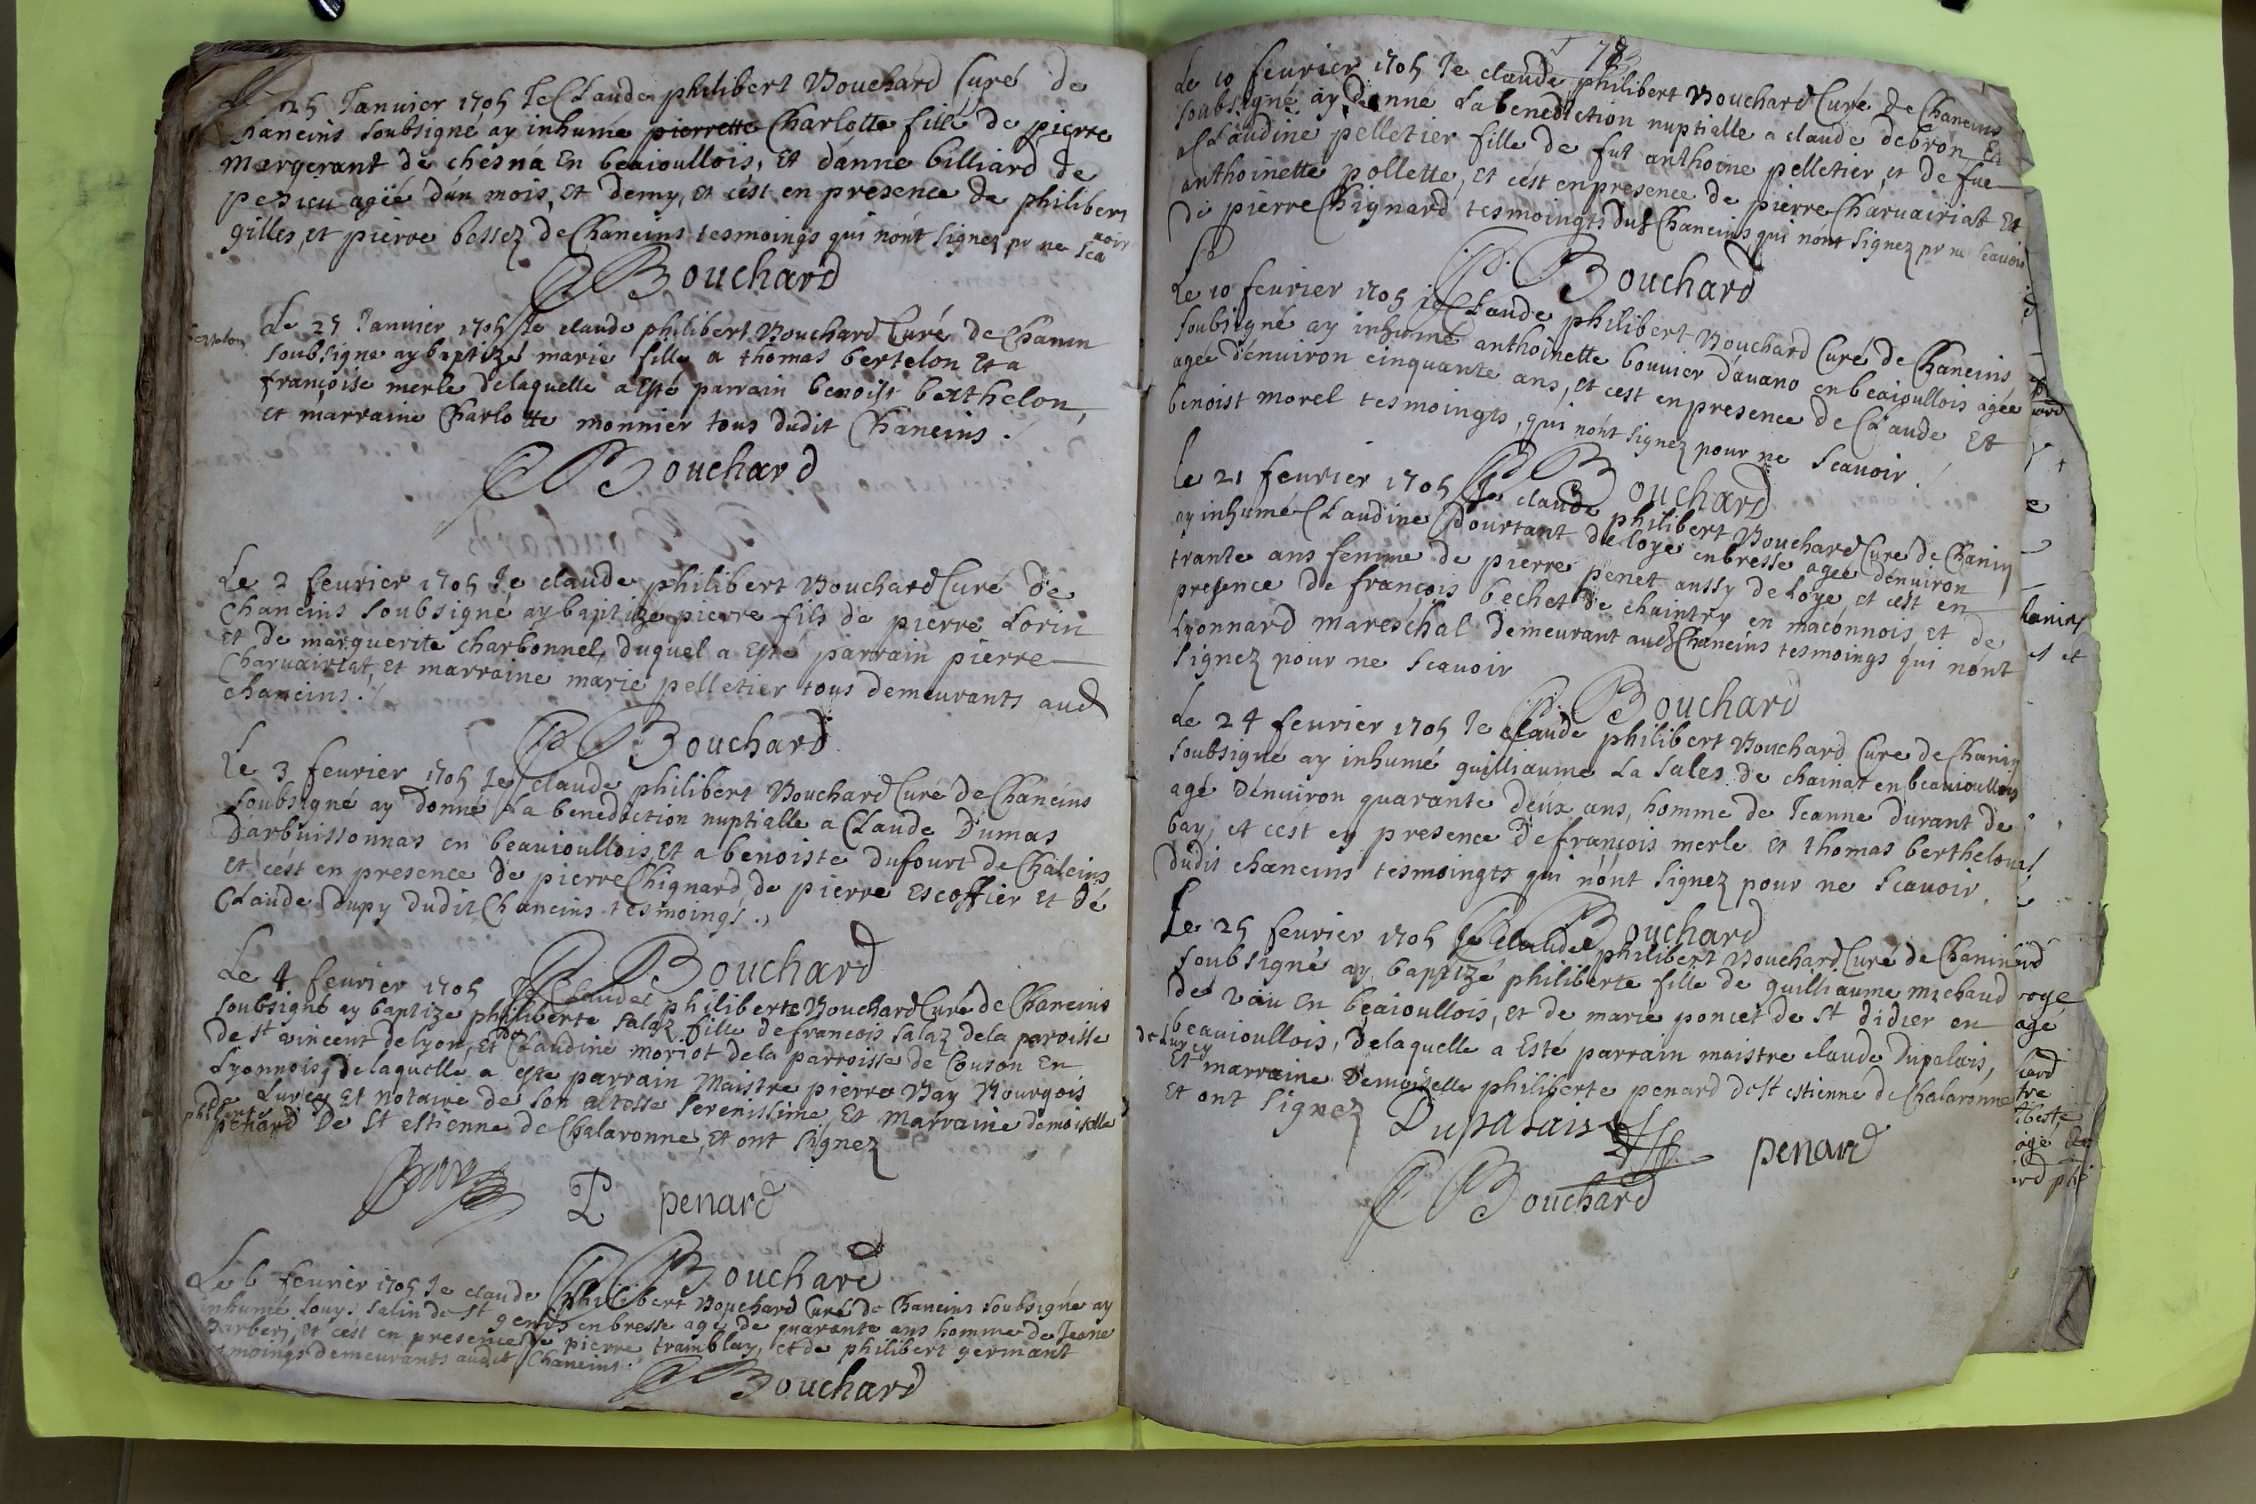 Le 25 Januier 1705 Je Claude philibert Bouchard Curé de
Chaneins soubsigné ay inhumé pierrette Charlotte fille de pierre
mergerant de chesna En beaioullois, et d'anne billiard de
pesieu agée d'un mois, et demy, et c'est en presence de philibert
gilles, et pierre bessez de Chaneins tesmoings qui n'ont signez pr ne sca
uoir
CP Bouchard
bertelon
Le 25 Januier 1705 Je claude philibert Bouchard Curé de Chanin
soubsigne ay baptizé marie fille a thomas bertelon et a
françoise merle de laquelle a esté parrain benoist berthelon,
et marraine Charlotte monnier tous dudit Chaneins.
CP Bouchard
Le 2 feurier 1705 Je claude philibert Bouchard Curé de
Chaneins soubsigné ay baptize pierre fils de pierre Lorin
et de marguerite charbonnel, duquel a esté parrain pierre
Charuairiat, et marraine marie pelletier tous demeurants aud
chaneins.
CP Bouchard
Le 3 feurier 1705 Je claude philibert Bouchard Curé de Chaneins
soubsigné ay donné La benediction nuptialle a Claude Dumas
Darbuissonnas en beauioullois et a benoiste dufourt de Chaleins
et c'est en presence de pierre Chignard, de pierre Escoffier et de
Claude Dupy dudit Chaneins tesmoings.
CP Bouchard
Le 4 feurier 1705 Je Claude philiberte Bouchard Curé de Chaneins
soubsigné ay baptize philiberte salaz fille de francois salaz de la paroisse
de st vincent de lyon, et de Claudine moriot de la parroisse de Couson En
Lyonnois, de laquelle a esté parrain Maistre pierre Bay Bourgois
de Lurcy Et notaire de son altesse serenissime Et marraine demoiselle
philiberte
penard De St estienne de Chalaronne, et ont signez
Bay P penard
CP Bouchard
Le 6 feurier 1705 Je claude philibert Bouchard Curé de Chaneins soubsigné ay
inhumé Louys salin de st genis en bresse agé de quarante ans homme de Jeane
barberi, et c'est en presence de pierre tramblay, et de philibert germant
tesmoings demeurants audit Chaneins.
CP Bouchard
Le 10 feurier 1705 Je claude philibert Bouchard Curé de Chaneins
soubsigné ay donné La benediction nuptialle a claude debron, Et
a Claudine pelletier fille de fut anthoine pelletier, et de fue
anthoinette pollette, et c'est en presence de pierre Charuairiat Et
de pierre Chignard tesmoingts dud Chaneins qui n'ont signez pr ne scauoir
CP Bouchard
Le 10 feurier 1705 je Claude philibert Bouchard Curé de Chaneins
soubsigné ay inhumé anthoinette bouuier dauano en beaioullois agée
agée d'enuiron cinquante ans, et c'est en presence de Claude Et
benoist morel tesmoingts, qui n'ont signez pour ne scauoir.
CP Bouchard
Le 21 feurier 1705 Je claude philibert Bouchard Curé de Chanin
ay inhumé Claudine pourtant de loye en bresse agée denuiron
trante ans femme de pierre penet aussy de Loye, et c'est en
presence de françois bechet de chaintry en maconnois, et de
Lyonnard mareschal demeurant aud Chaneins tesmoings qui n'ont
signez pour ne scauoir
CP Bouchard
Le 24 feurier 1705 Je Claude philibert Bouchard Curé de Chanin
soubsigné ay inhumé guilliaume La sales de charnat en beauioullois
agé denuiron quarante deux ans, homme de Jeanne durant de
bay, et c'est en presence de françois merle et thomas berthelon
dudit chaneins tesmoingts qui n'ont signez pour ne scauoir.
CP Bouchard
Le 25 feurier 1705 Je Claude philibert Bouchard Curé de Chanin
soubsigné ay baptizé philiberte fille de guilliaume michaud
de vau en beaioullois, et de marie poncet de st didier en
beauioullois, de laquelle a Esté parrain maistre claude Dupalais,
de Lurcy
Et marraine Demoiselle philiberte penard de st estienne de Chalaronne
Et ont signez
Dupalais penard
CP Bouchard